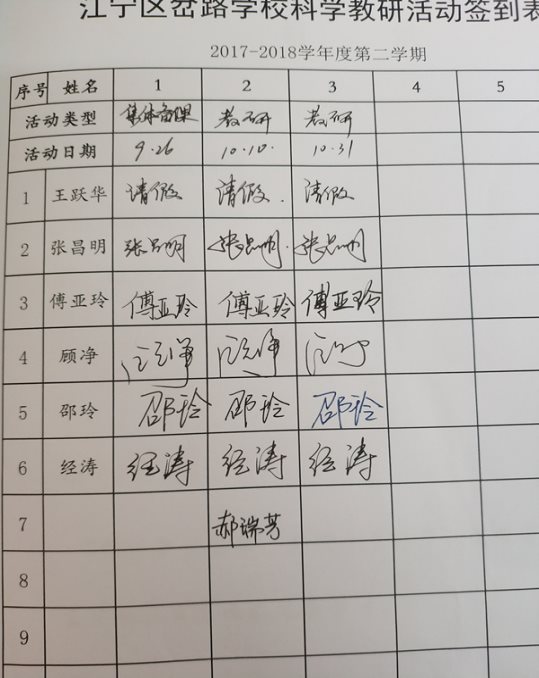 江宁区岔路学校科学教研活动签到表
2017-2018学年度第二学期
序号 姓名 1 2 3 4 5
活动类型 集体备课 教研 教研
活动日期 9.26 10.10. 10.31
1 王跃华 请假 请假. 请假
2 张昌明 张昌明 张昌明. 张昌明
3 傅亚玲 傅亚玲 傅亚玲 傅亚玲
4 顾净
5 邵玲 邵玲 邵玲 邵玲
6 经涛 经涛 经涛 经涛
7 郝瑞芳
8
9